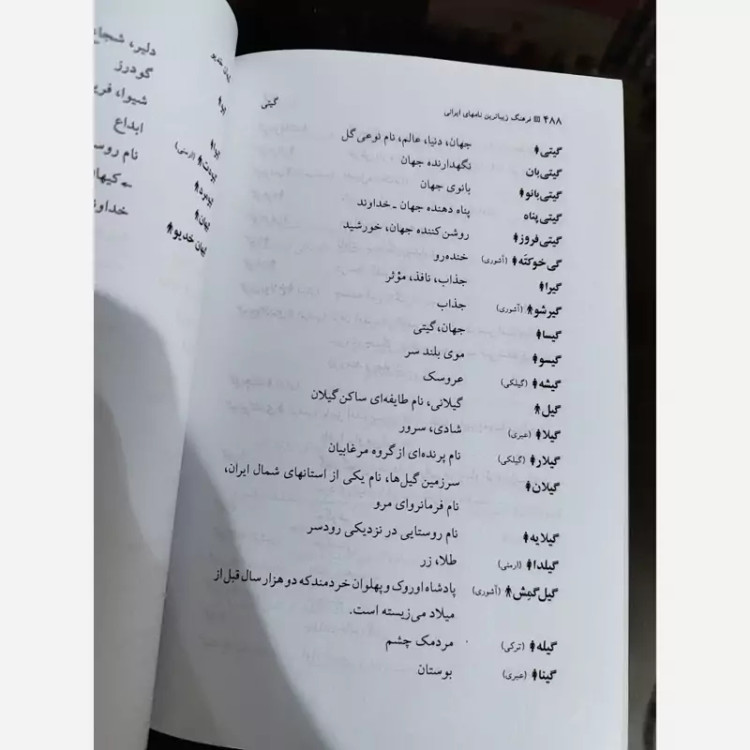 ۴۸۸ فرهنگ زیباترین نامهای ایرانی گیتی
گیتی جهان، دنیا، عالم، نام نوعی گل
گیتی بان نگهدارنده جهان
گیتی بانو بانوی جهان
گیتی پناه پناه دهنده جهان ـ خداوند
گیتی فروز روشن کننده جهان، خورشید
گی خوکتَه (آشوری) خنده‌رو
گیرا جذاب، نافذ، مؤثر
گیرشو (آشوری) جذاب
گیسا جهان، گیتی
گیسو موی بلند سر
گیشه (گیلکی) عروسک
گیل گیلانی، نام طایفه‌ای ساکن گیلان
گیلا (عبری) شادی، سرور
گیلار (گیلکی) نام پرنده‌ای از گروه مرغابیان
گیلان سرزمین گیل‌ها، نام یکی از استانهای شمال ایران،
نام فرمانروای مرو
گیلایه نام روستایی در نزدیکی رودسر
گیلدا (ارمنی) طلا، زر
گیل گمِش (آشوری) پادشاه اوروک و پهلوان خردمند که دو هزار سال قبل از
میلاد می‌زیسته است.
گیله (ترکی) مردمک چشم
گینا (عبری) بوستان
دلیر، شجاع
گودرز
شیوا،
ابداع
(ارمنی) نام
کیهان